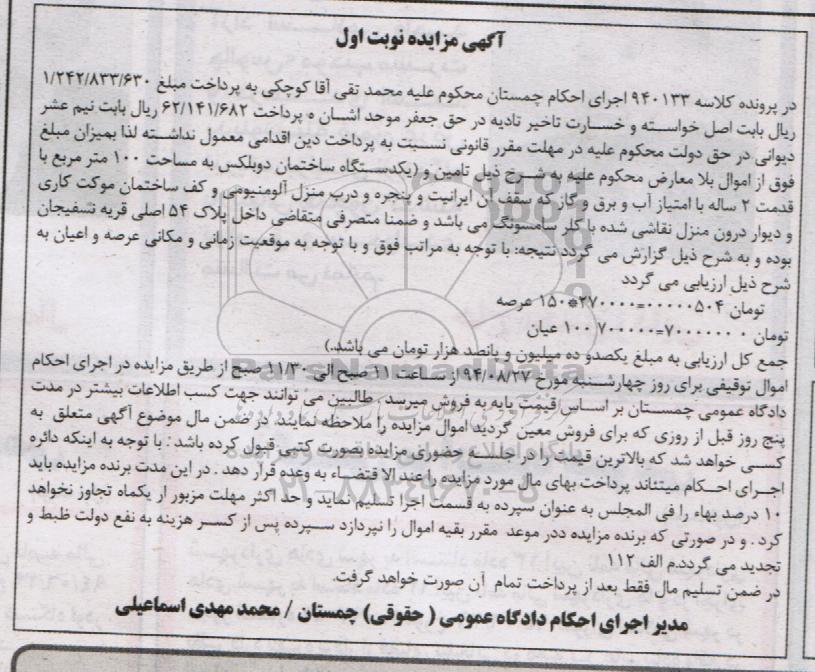 آگهی مزایده نوبت اول
در پرونده کلاسه ۹۴۰۱۳۳ اجرای احکام چمستان محکوم علیه محمد تقی آقا کوچکی به پرداخت مبلغ ۱/۲۴۲/۸۳۳/۶۳۰
ریال بابت اصل خواسته و خسارت تاخیر تادیه در حق جعفر موحد اشان ه پرداخت ۶۲/۱۴۱/۶۸۲ ریال بابت نیم عشر
دیوانی در حق دولت محکوم علیه در مهلت مقرر قانونی نسبت به پرداخت دین اقدامی معمول نداشته لذا بمیزان مبلغ
فوق از اموال بلا معارض محکوم علیه به شرح ذیل تامین و (یکدستگاه ساختمان دوبلکس به مساحت ۱۰۰ متر مربع با
قدمت ۲ ساله با امتیاز آب و برق و گاز که سقف آن ایرانیت و پنجره و درب منزل آلومنیومی و کف ساختمان موکت کاری
و دیوار درون منزل نقاشی شده با کلر سامسونگ می باشد و ضمنا متصرفی متقاضی داخل پلاک ۵۴ اصلی قریه نشیجان
بوده و به شرح ذیل گزارش می گردد نتیجه: با توجه به مراتب فوق و با توجه به موقعیت زمانی و مکانی عرصه و اعیان به
شرح ذیل ارزیابی می گردد
تومان ۴۰۵۰۰۰۰۰=۲۷۰۰۰۰*۱۵۰ عرصه
تومان ۷۰۰۰۰۰۰۰=۷۰۰۰۰۰ ۱۰۰ عیان
جمع کل ارزیابی به مبلغ یکصدو ده میلیون و پانصد هزار تومان می باشد.)
اموال توقیفی برای روز چهارشنبه مورخ ۹۴/۰۸/۲۷ از ساعت ۱۱ صبح الی ۱۱/۳۰ صبح از طریق مزایده در اجرای احکام
دادگاه عمومی چمستان بر اساس قیمت پایه به فروش میرسد. طالبین می توانند جهت کسب اطلاعات بیشتر در مدت
پنج روز قبل از روزی که برای فروش معین گردید اموال مزایده را ملاحظه نمایند. در ضمن مال موضوع آگهی متعلق به
کسی خواهد شد که بالاترین قیمت را در جلسه حضوری مزایده بصورت کتبی قبول کرده باشد. با توجه به اینکه دائره
اجرای احکام میتئاند پرداخت بهای مال مورد مزایده را عند الا قتضاء به وعده قرار دهد. در این مدت برنده مزایده باید
۱۰ درصد بهاء را فی المجلس به عنوان سپرده به قسمت اجرا تسلیم نماید و حد اکثر مهلت مزبور از یکماه تجاوز نخواهد
کرد. و در صورتی که برنده مزایده ددر موعد مقرر بقیه اموال را نپردازد سپرده پس از کسر هزینه به نفع دولت ظبط و
تجدید می گردد.م الف ۱۱۲
در ضمن تسلیم مال فقط بعد از پرداخت تمام آن صورت خواهد گرفت.
مدیر اجرای احکام دادگاه عمومی ( حقوقی) چمستان / محمد مهدی اسماعیلی
ParsNamadData
۰۲۱-۸۸۳۴۹۶۷۰-۵